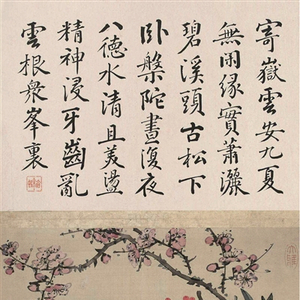 寄嶽雲安九夏
無閑緣實蕭灑
碧溪頭古松下
臥槃陀晝復夜
八德水清且美盪
精神浸牙齒亂
雲根衆峯裏